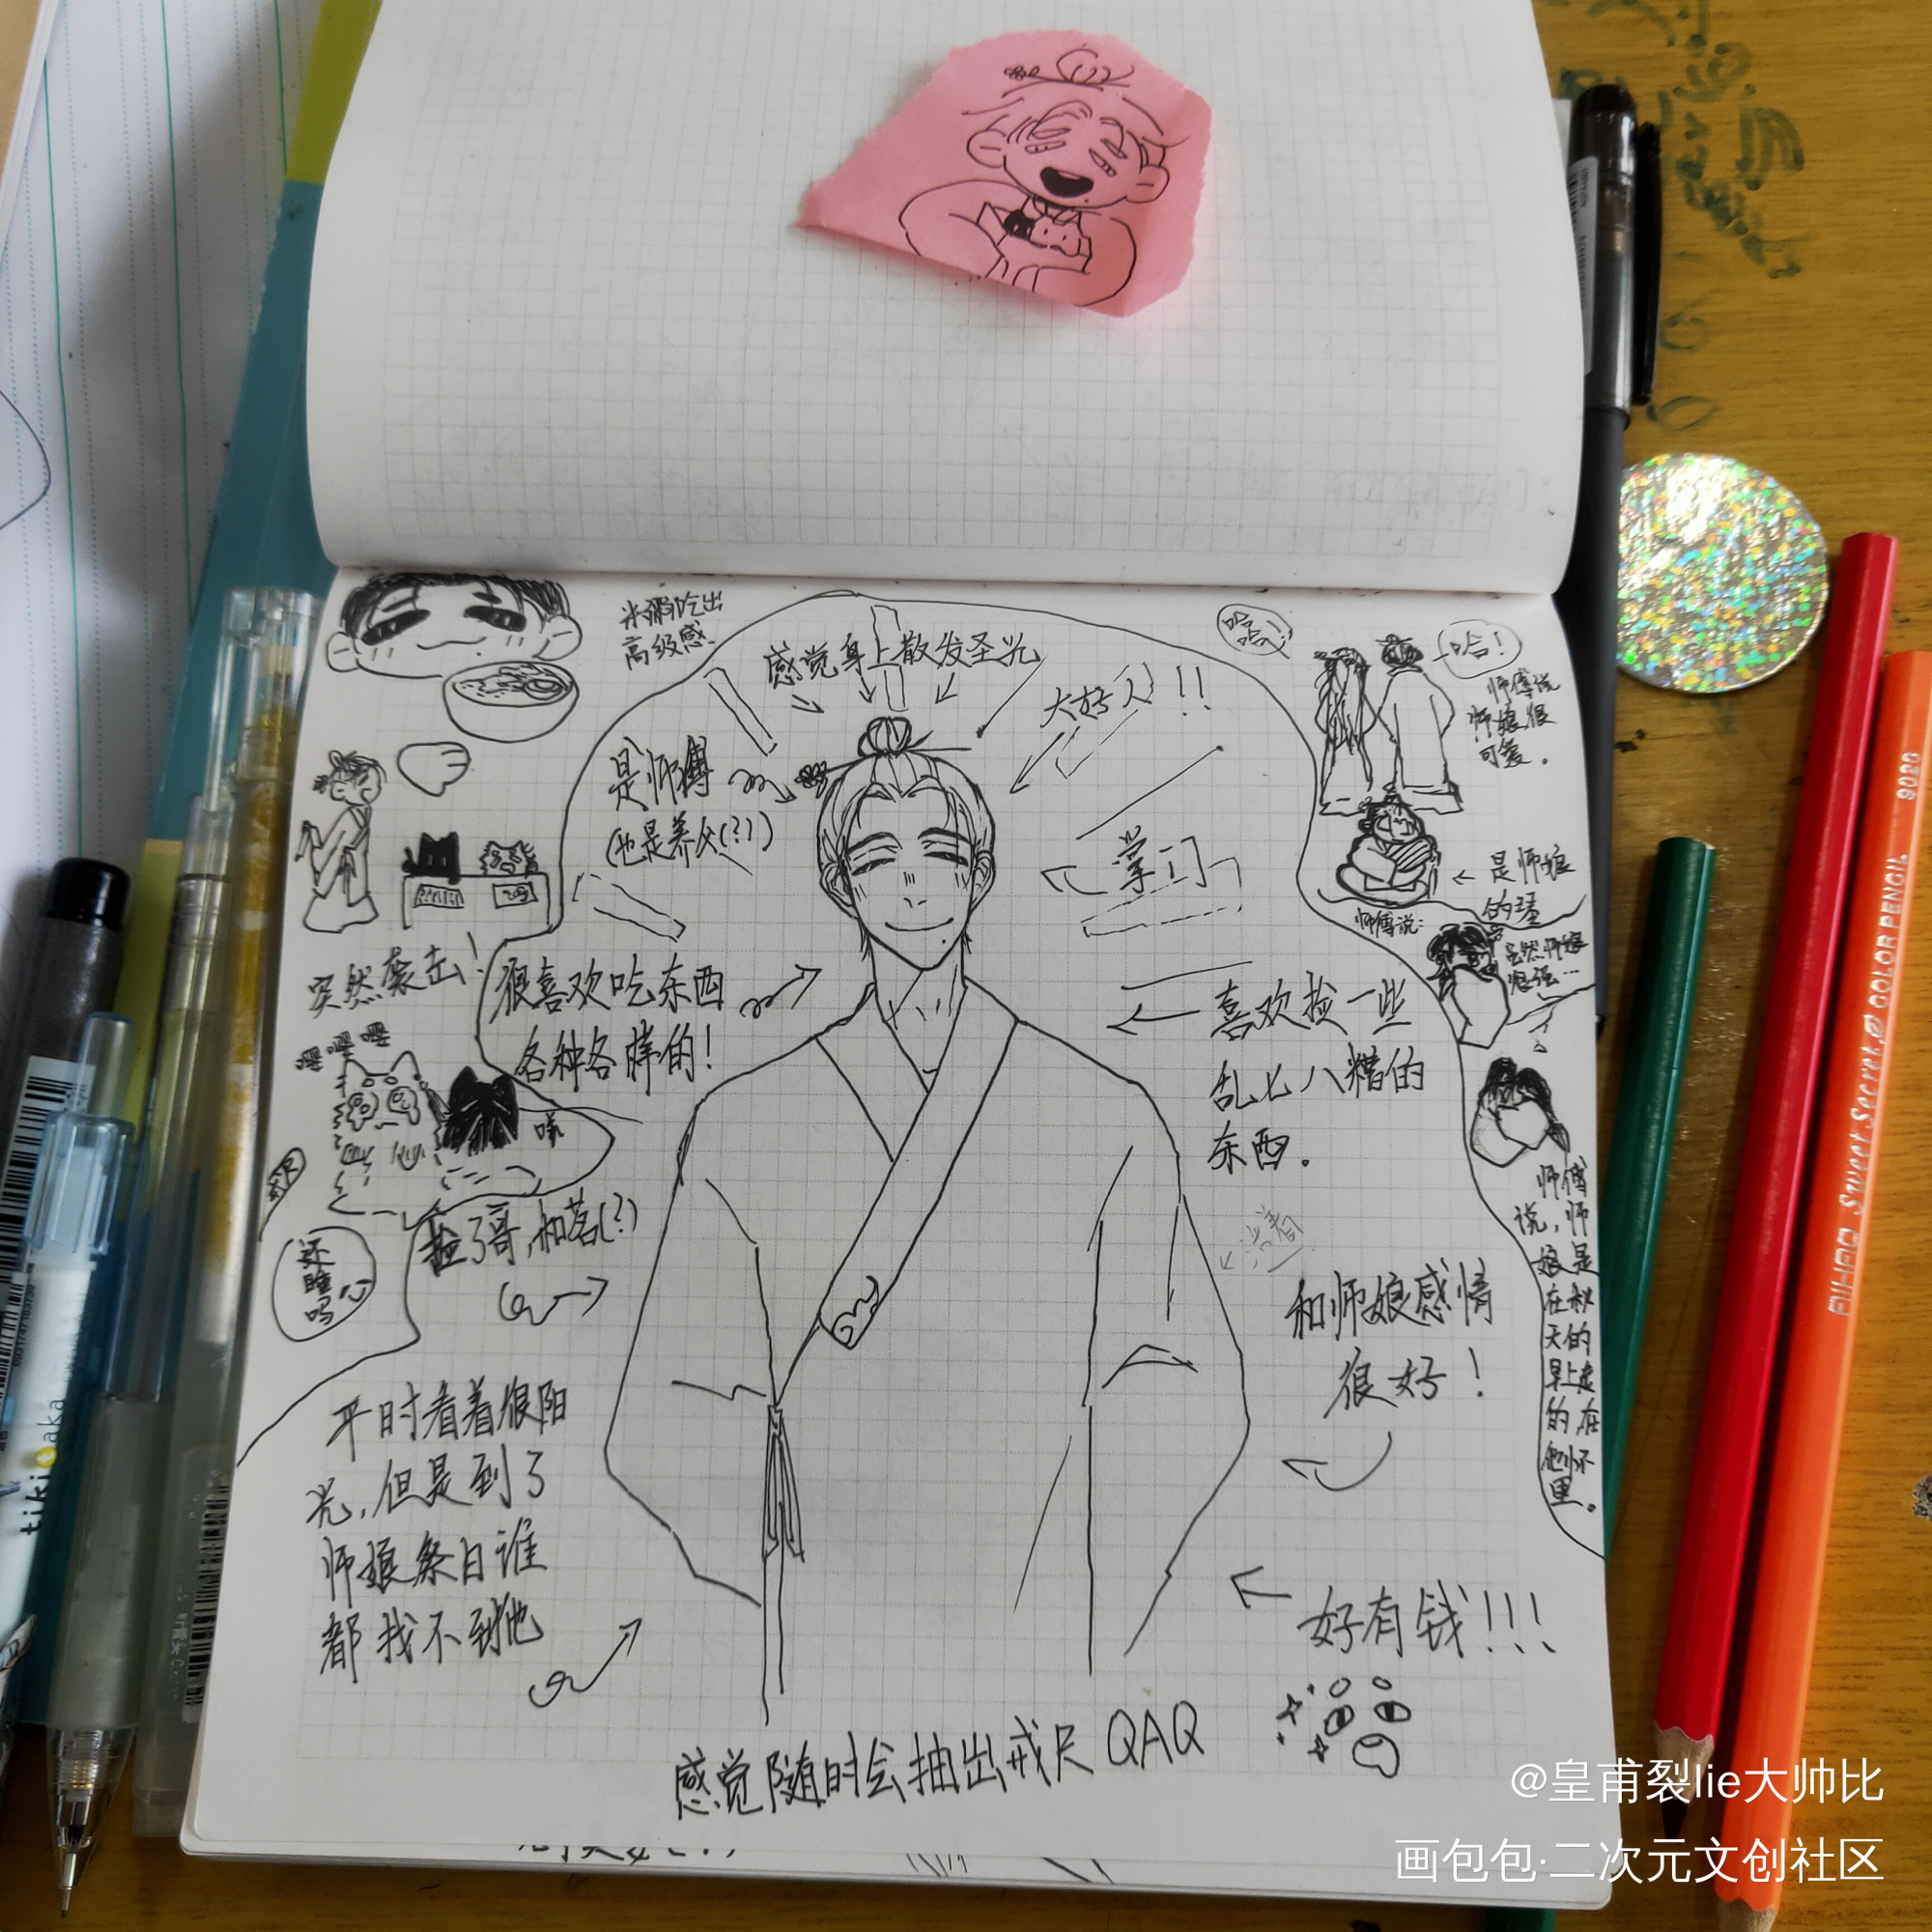 米粥吃出
高级感
感觉身上散发圣光
大好人!!
哈哈
哈!
师傅说
师娘很
可爱。
是师傅
(也是养父(?))
掌门
是师娘
师傅说:
虽然师娘
很强…
突然袭击!
很喜欢吃东西
各种各样的!
喜欢捡一些
乱七八糟的
东西。
嘿嘿嘿
捡了哥,和茗(?)
还
睡
吗
师傅
说,师
娘是
在秋
天的
早上走
的,在
他怀
里。
和师娘感情
很好!
平时看着很阳
光,但是到了
师娘祭日谁
都找不到他
好有钱!!!
感觉随时会抽出戒尺 QAQ
tiki
aka
9080
COLOR PENCIL
Sweet Secret
@皇甫裂lie大帅比
画包包·二次元文创社区